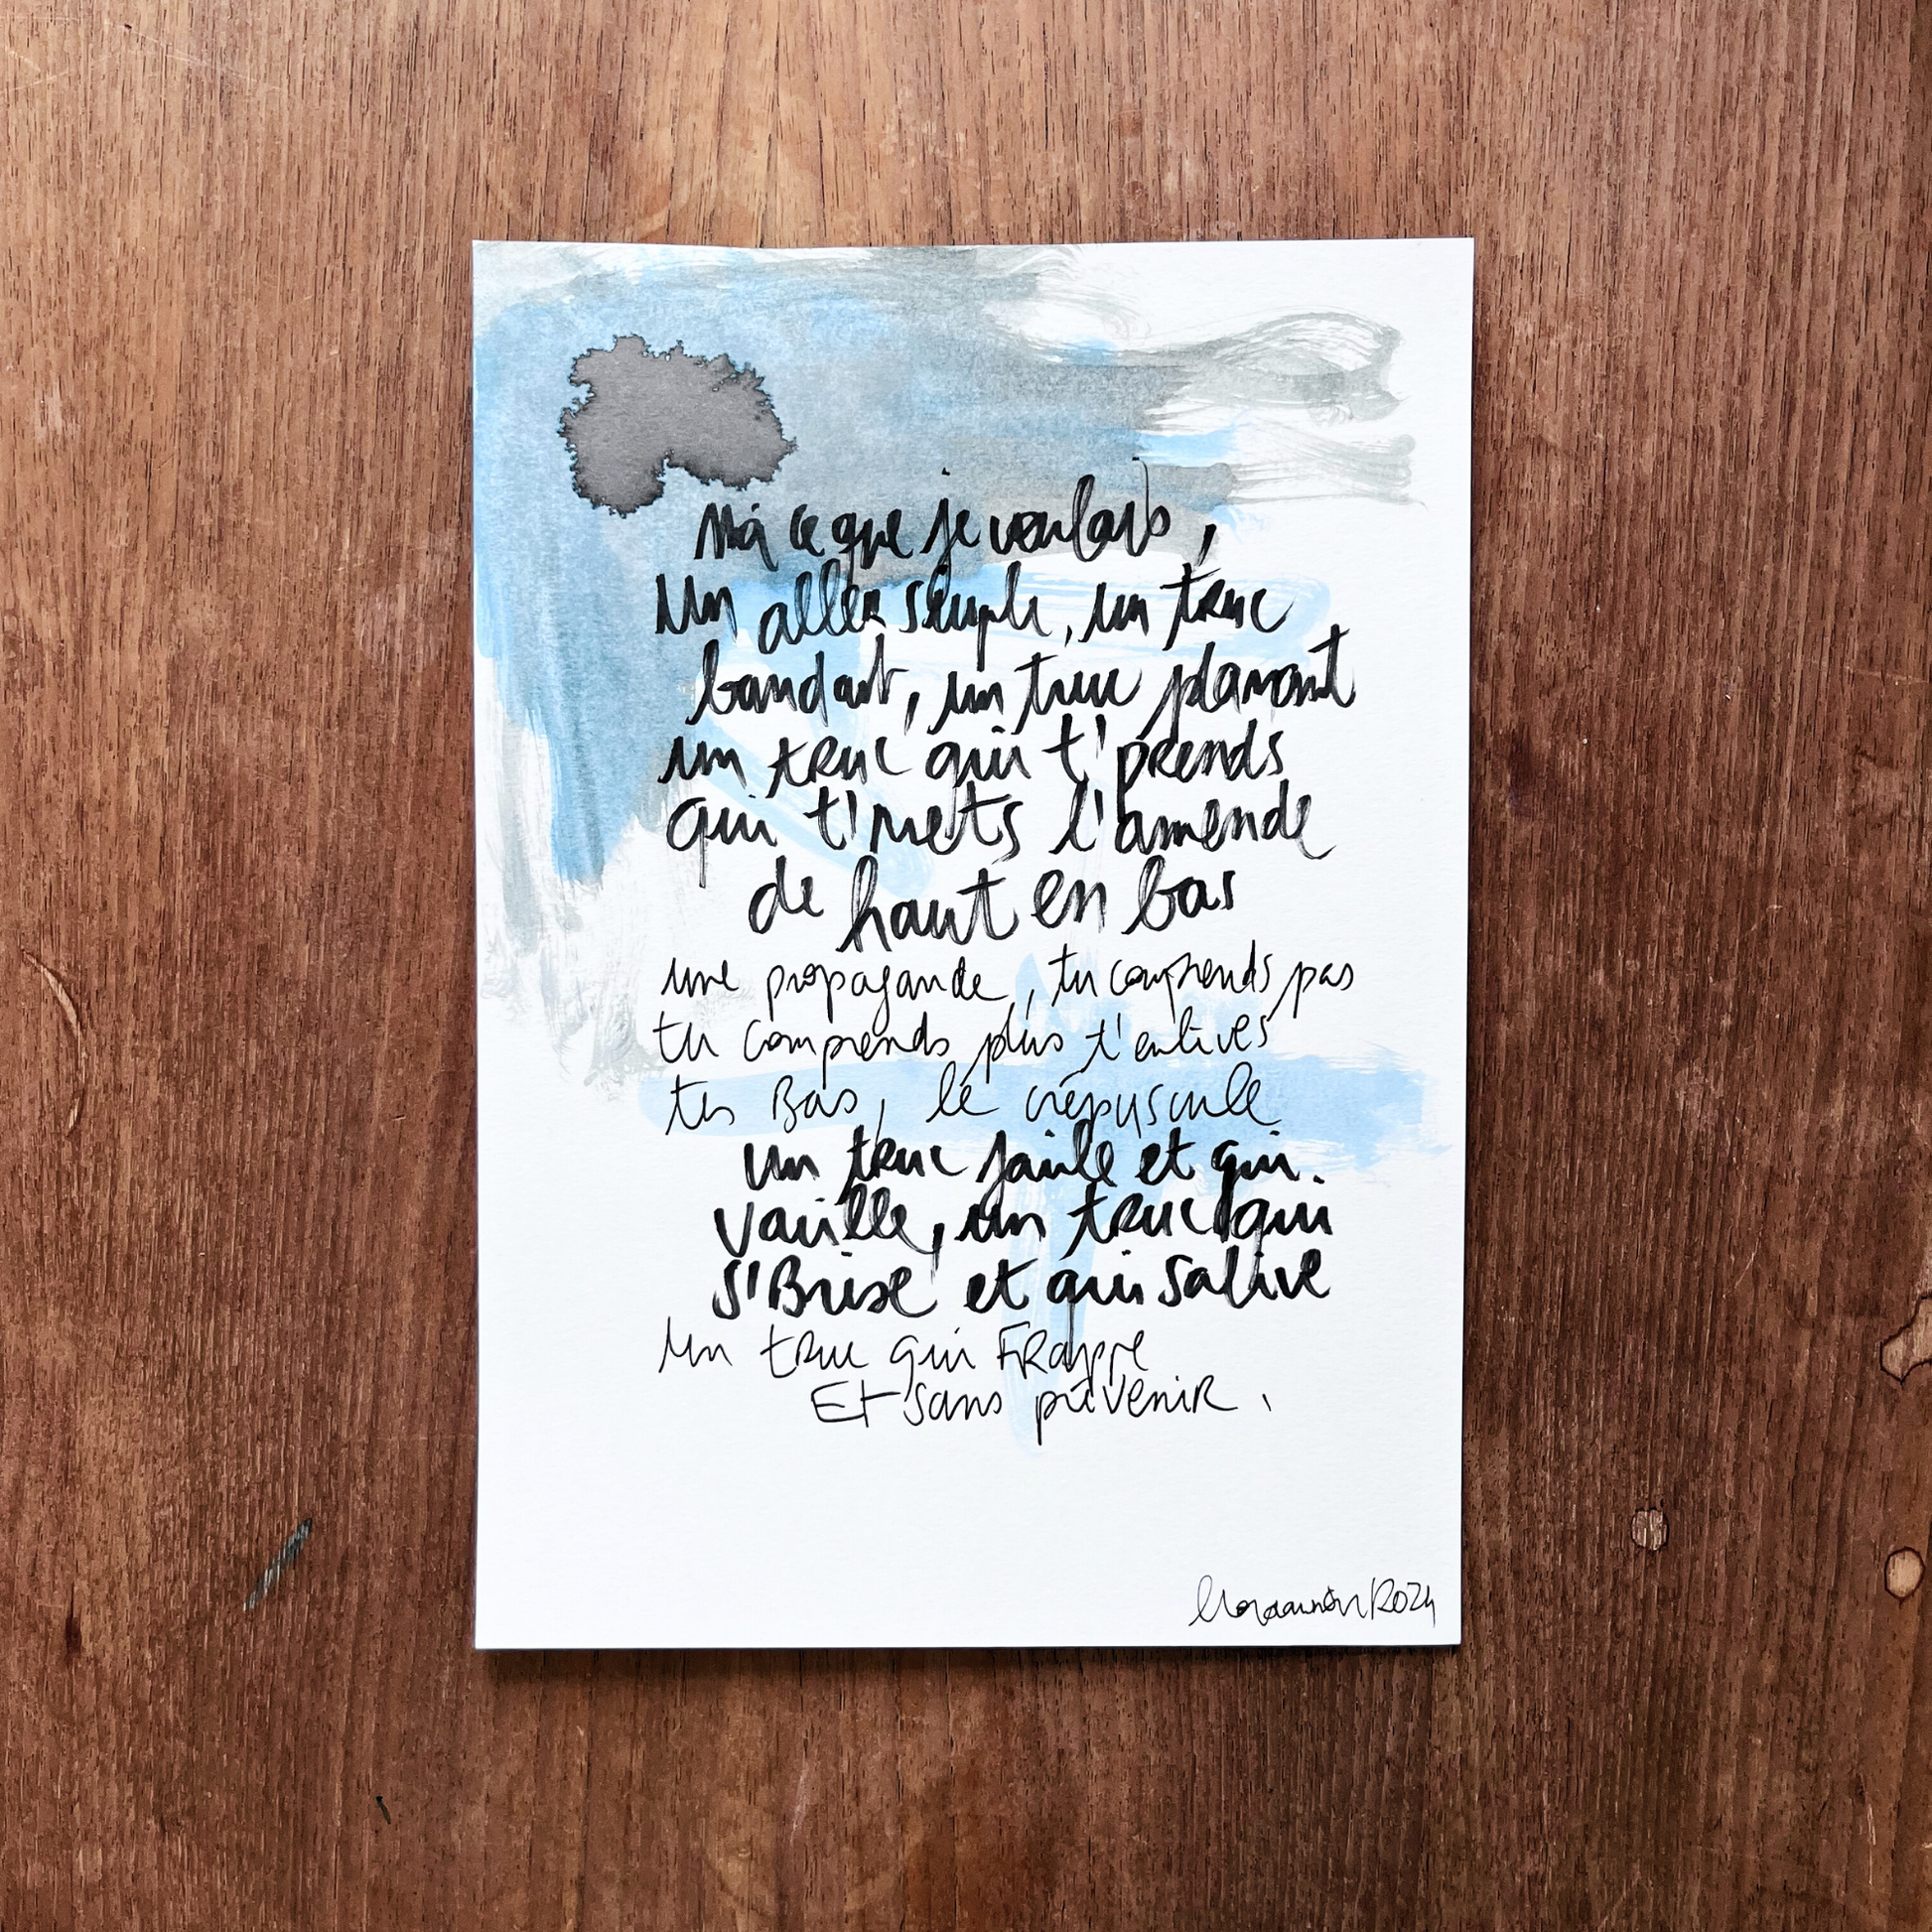 ce que je voulais,
Un aller simple, un truc
bandant, un truc planant
un truc qui t'prends
qui t'mets l'amende
de haut en bas
une propagande, tu comprends pas
tu comprends plus t'enlives
tes Bas, le crépuscule
un truc faille et qui
vaille, un truc qui
s'Brise et qui salive
Un truc qui FRappe
Et sans prévenir.